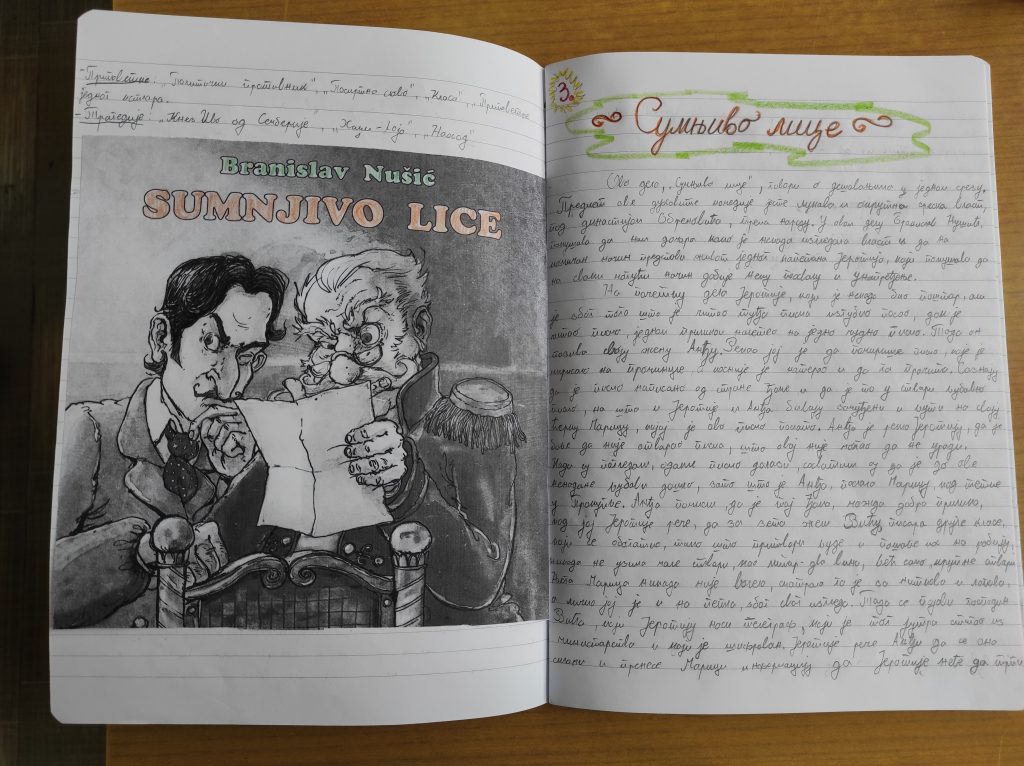 - Приповетке: „Политички противник", „Посмртно слово", „Класа", „Приповетке
једног каплара.
- Трагедије: „Кнез Иво од Семберије", „Хаџи-Лоја", „Наход"
Branislav Nušić
SUMNJIVO LICE
3.
Сумњиво лице
Ово дело, „Сумњиво лице", говори о дешавањима у једном срезу.
Предмет ове духовите комедије јесте лукава и окрутна српска власт,
под династијом Обреновића, према народу. У овом делу Бранислав Нушић,
покушава да нам дочара како је некада изгледала власт и да на
комичан начин представи живот једног капетана Јеротија, који покушава да
на својим начин добије неку похвалу и унапређење.
На почетку дела Јеротије, који је некада био поштар, али
је због тога што је читао туђа писма изгубио посао, док је
читао писмо, једном приликом наишао на једно чудно писмо. Тада он
позива своју жену Анђу. Рекао јој је да помирише писмо, које је
мирисало на и касније је натерао и да га прочита. Сазнају
да је писмо написано од стране Ђоке и да је то у ствари љубавно
писмо, на шта и Јеротије и Анђа бивају зачуђени и љути на своју
ћерку Марицу, којој је ово писмо послато. Анђа је рекла Јеротију, да је
боље да није отварао писма, што овај није могао да не уради.
Када су погледали, одакле писмо долази, схватили су да је до ове
љубави дошло, зато што је Анђа, послала Марицу, код тетке
у Прокупље. Анђа помисли, да је тај Ђока, можда добра прилика,
код јој Јеротије рече, да за зета жели Вићу, писара друге класе,
који се обогатио, тако што људе и их на робију,
никада не узима мале ствари као литар-два вина, већ само крупне ствари.
Њега Марица никада није волела, сматрала га је за и
а личио јој је и на петла, због свог изгледа. Тада се појави господин
Вића, који Јеротију носи телеграм, који је тог јутра стигао из
министарства и који је шифрован. Јеротије рече Анђи да се она
склони и пренесе Марици информацију да Јеротије неће да трпи